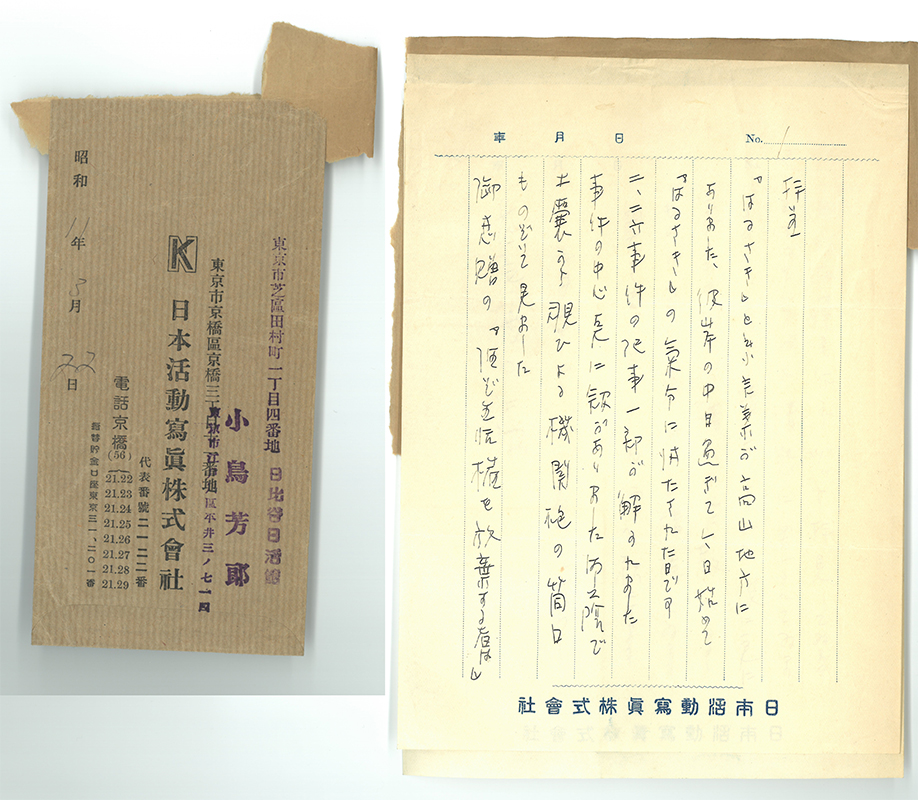 昭和11年3月22日
K 日本活動寫眞株式會社
東京市芝區田村町一丁目四番地 日比谷日活館
東京市京橋區京橋三丁目
番地
區平井三ノ七一四
小鳥芳郎
電話京橋(56)
代表番號二一二二番
21.22
21.23
21.24
21.25
21.26
21.27
21.28
21.29
振替貯金口座東京三一、二〇一番
年 月 日 No. 1
拝啓
『はるさき』と
が高山地方に
ありました、彼岸の中日過ぎて六日始めて
『はるさき』の氣分に
された日です
二、二六事件の記事一部が解かれました
事件の中心点に
がありました
陰で
土嚢から覗ひよる機関砲の筒口
もの
で見ました
御恵贈の『
を放棄する
』
日本活動寫眞株式會社